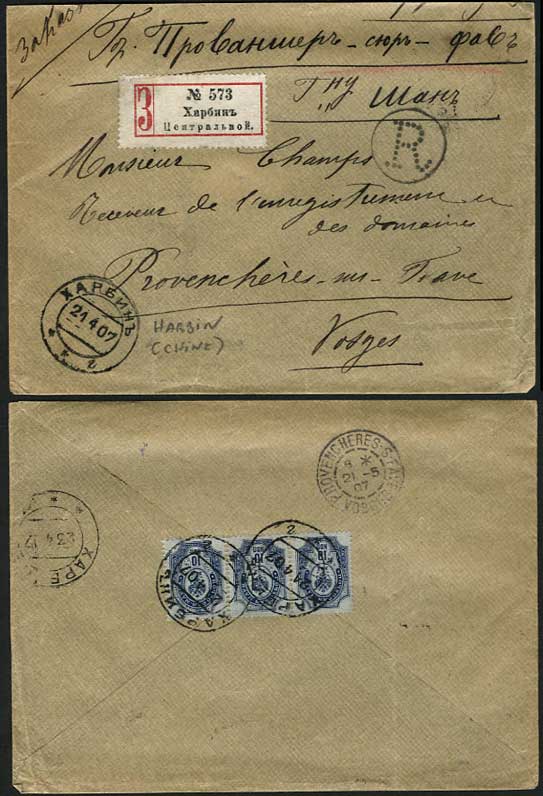 Заказ
Гг. Прованшеръ - сюръ - Фавъ
Гну Шанъ
З
№ 573
Харбинъ
Центральной.
R
Monsieur Champs
Receveur de l'enregistrement et
des domaines
Provenchères-sur-Fave
Vosges
ХАРБИНЪ
21.4.07
* 2 *
HARBIN
(CHINE)
PROVENCHERES-S-FAVE
8 *
21 -5
07
VOSGES
2
10 10 10
21.4.07
ХАРБИНЪ
ХАРБ
23 4
ХАРБ